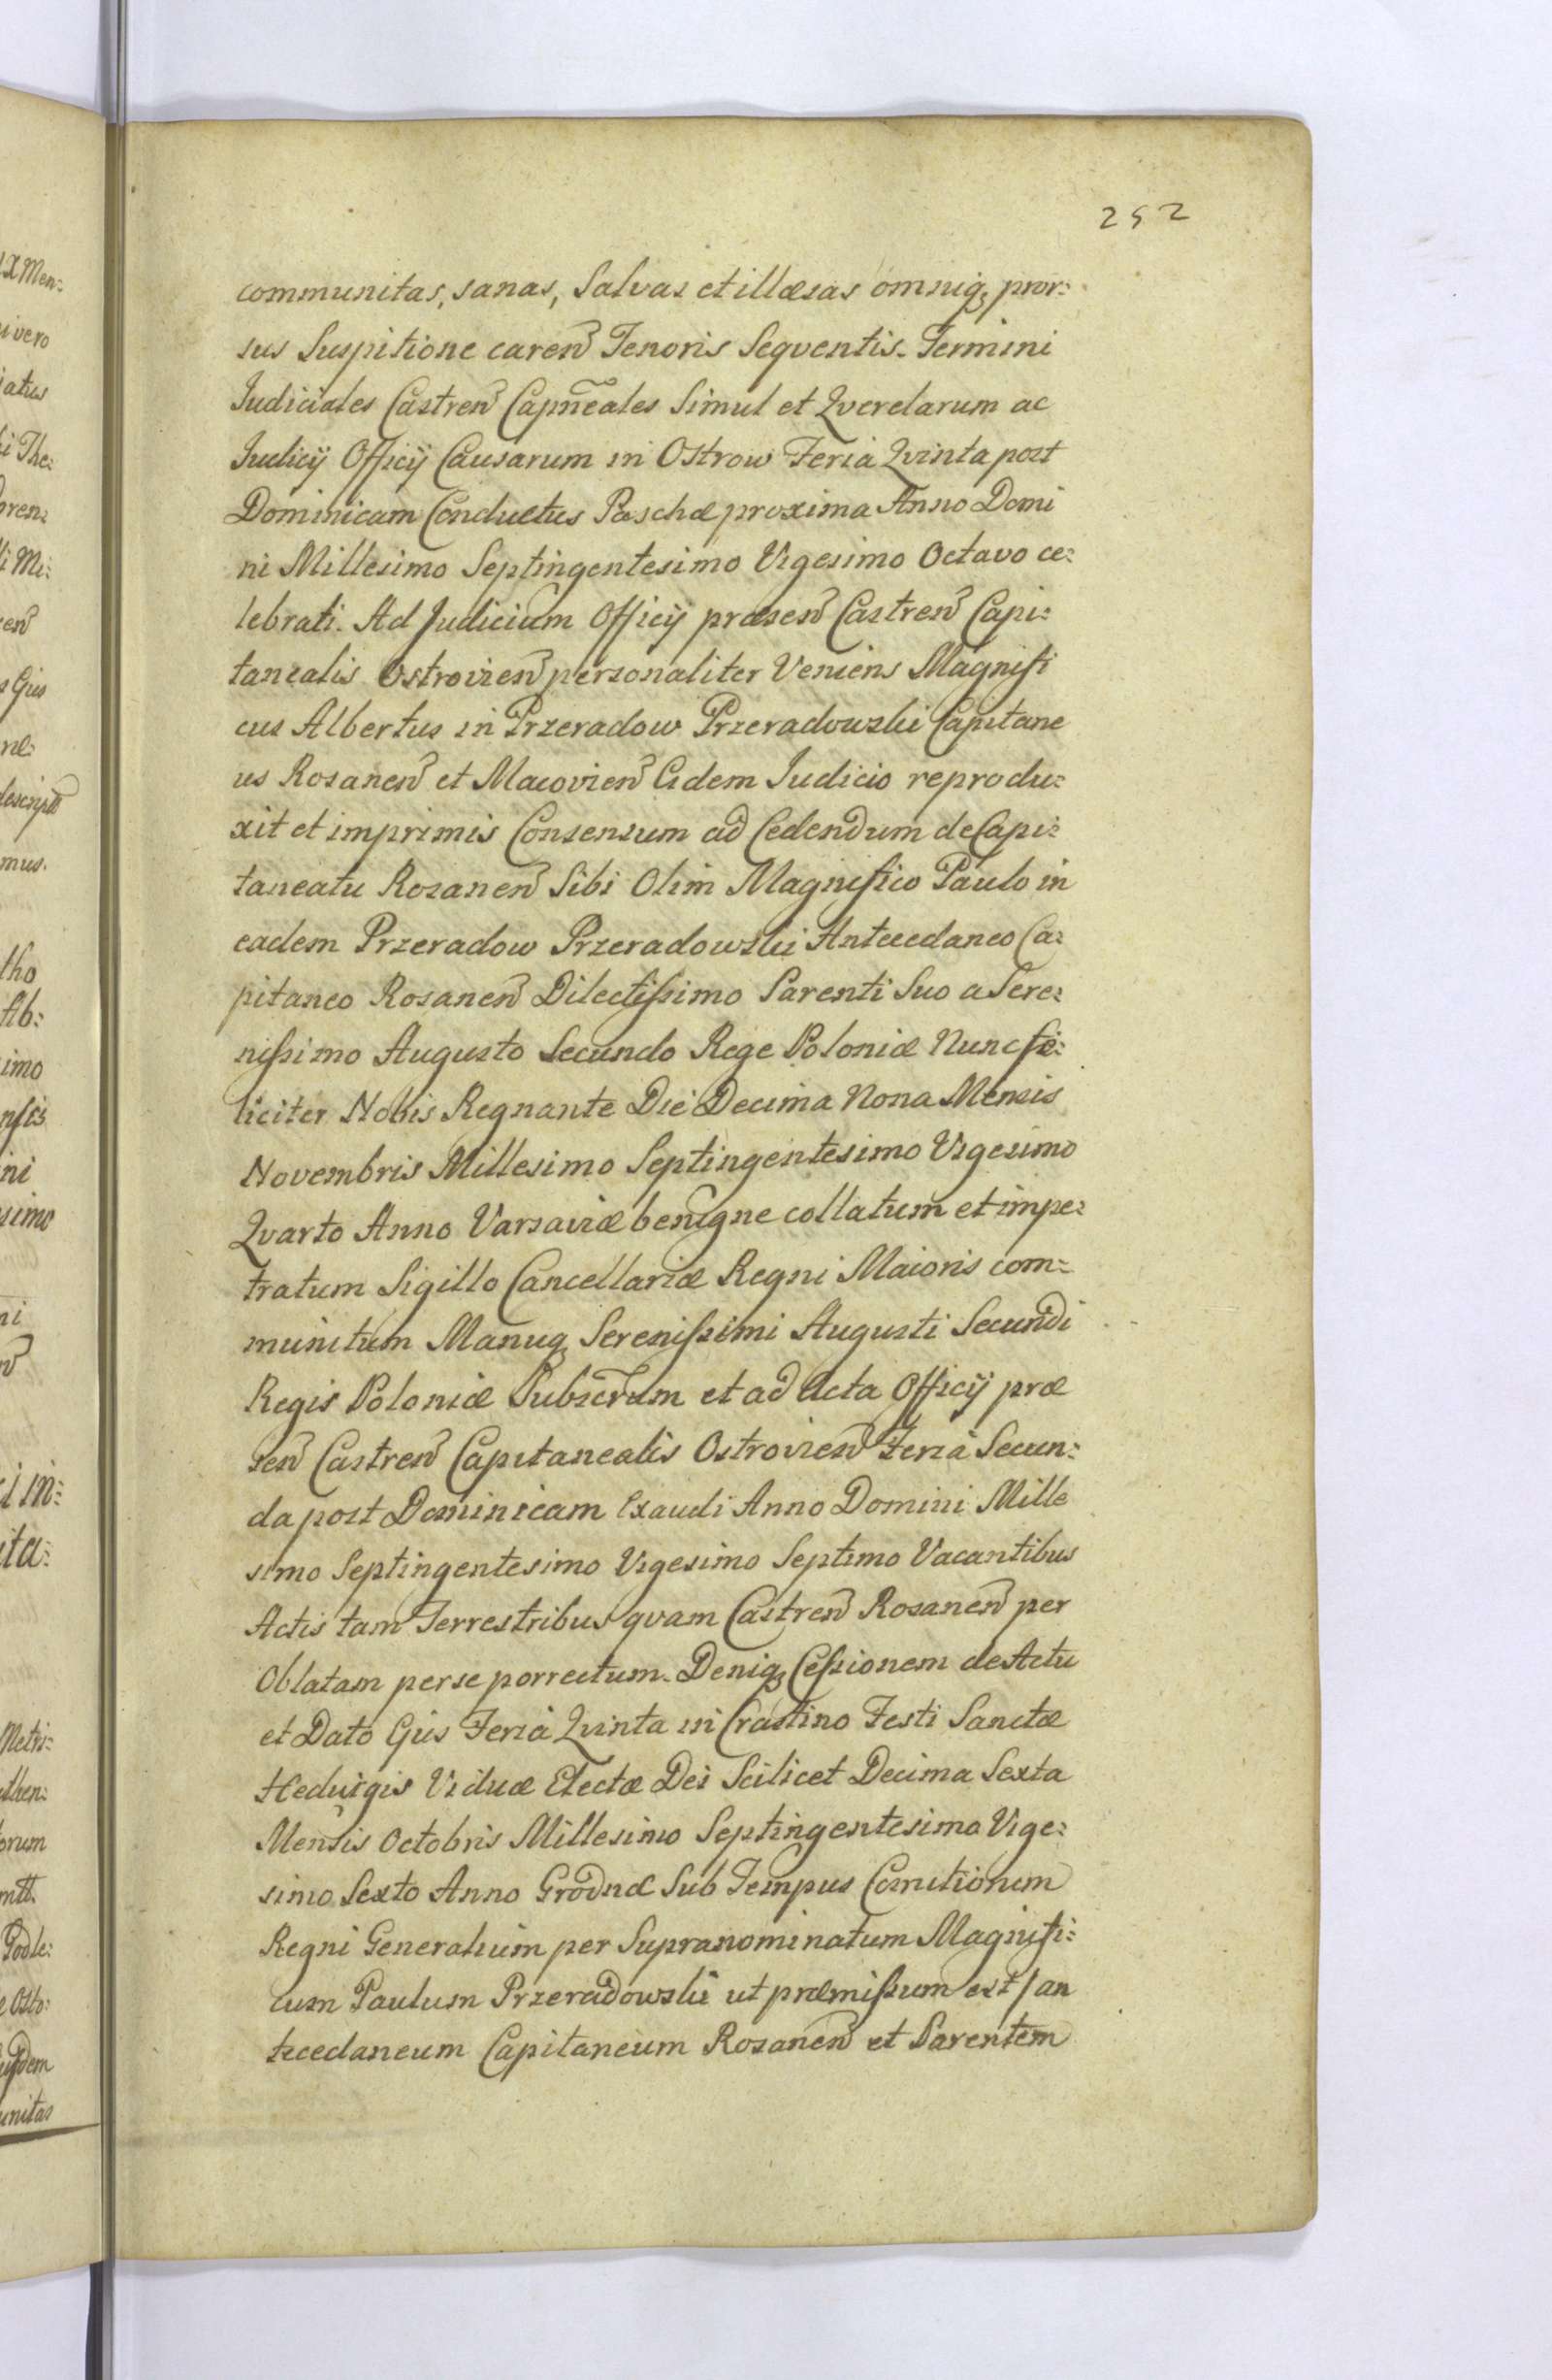 252
communitas, sanas, Salvas et illæsas omniq, pror:
sus Suspitione caren Tenoris Seqventis. Termini
Iudiciales Castren Capnēales Simul et Qverelarum ac
Iudicij Officij Causarum in Ostrow Feria Qvinta post
Dominicam Conductus Paschæ proxima Anno Domi
ni Millesimo Septingentesimo Vigesimo Octavo ce:
lebrati. Ad Judicium Officij præsen Castren Capi:
tanealis Ostrovien personaliter Veniens Magnifi
cus Albertus in Przeradow Przeradowski Capitane
us Rosanen et Macovien Eidem Iudicio reprodu:
xit et imprimis Consensum ad Cedendum de Capi:
taneatu Rosanen Sibi Olim Magnifico Paulo in
eadem Przeradow Przeradowski Antecedaneo Ca:
pitaneo Rosanen Dilectissimo Parenti Suo a Sere:
nissimo Augusto Secundo Rege Poloniæ Nunc fæ:
liciter Nobis Regnante Die Decima Nona Mensis
Novembris Millesimo Septingentesimo Vigesimo
Qvarto Anno Varsaviæ benigne collatum et impe:
tratum Sigillo Cancellariæ Regni Maioris com=
munitum Manuq, Serenissimi Augusti Secundi
Regis Poloniæ Subscrum et ad Acta Officij præ
sen Castren Capitanealis Ostrovien Feria Secun:
da post Dominicam Exaudi Anno Domini Mille
simo Septingentesimo Vigesimo Septimo Vacantibus
Actis tam Terrestribus qvam Castren Rosanen per
Oblatam per se porrectum. Deniq, Cessionem de Actu
et Dato Ejus Feria Qvinta in Crastino Festi Sanctæ
Hedvigis Viduæ Electæ Dei Scilicet Decima Sexta
Mensis Octobris Millesimo Septingentesimo Vige:
simo Sexto Anno Grodnæ Sub Tempus Comitiorum
Regni Generalium per Supranominatum Magnifi:
cum Paulum Przeradowski ut præmissum est / an
tecedaneum Capitaneum Rosanen et Parentem